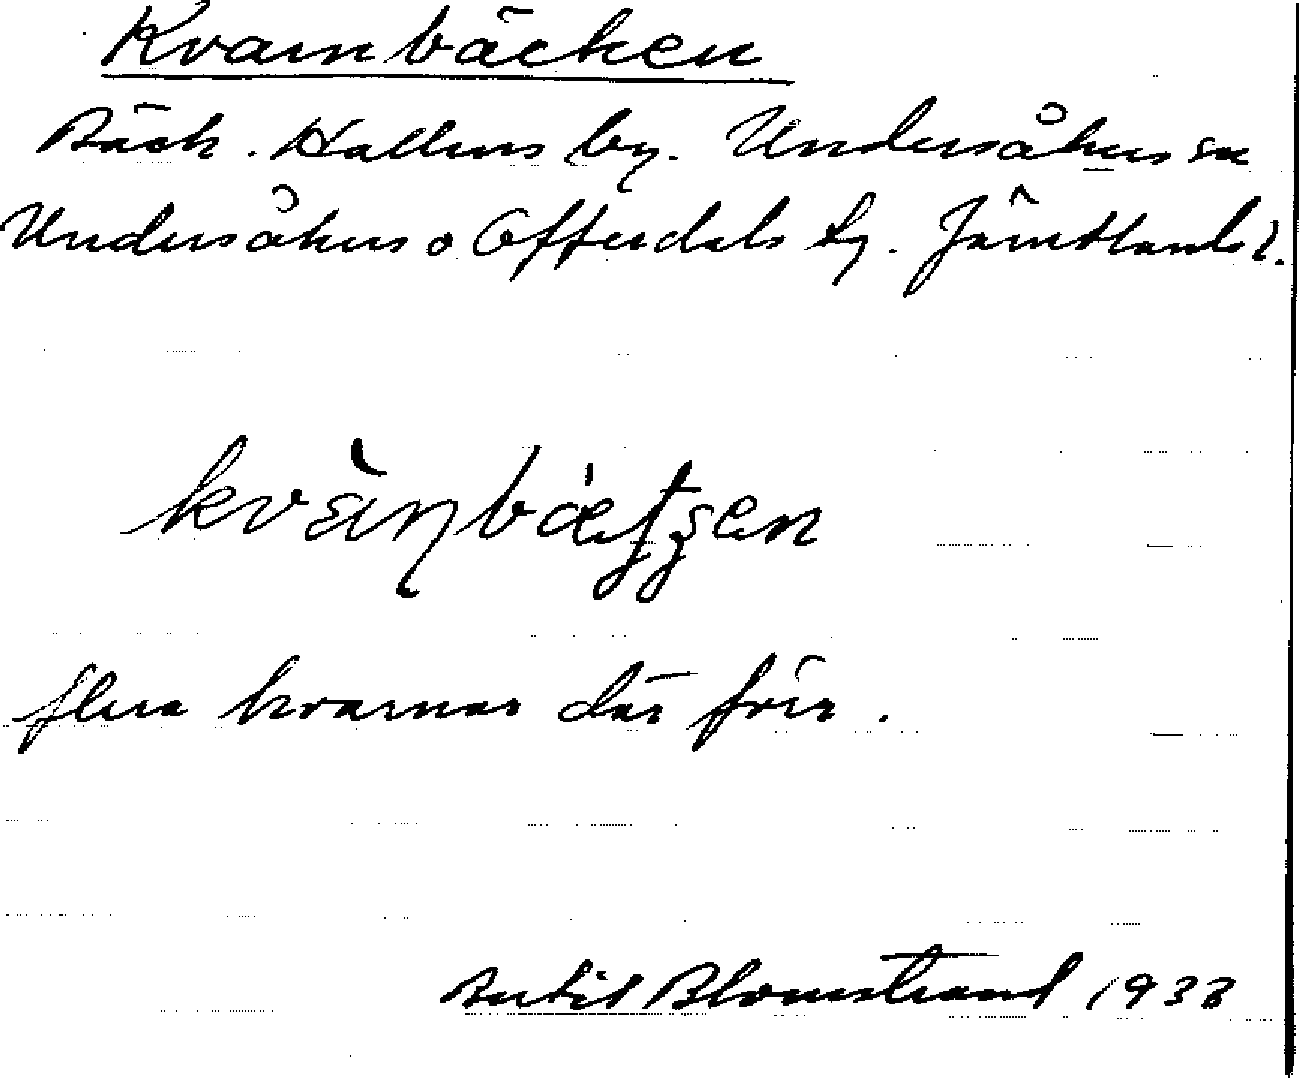 Kvarnbäcken
Bäck. Hallens by. Undersåkers sn
Undersåkers o Offerdals tg. Jämtlands l.
kvä̀ɳbæʃʒen
flera kvarnar där förr.
Bertil Blomstrand 1933